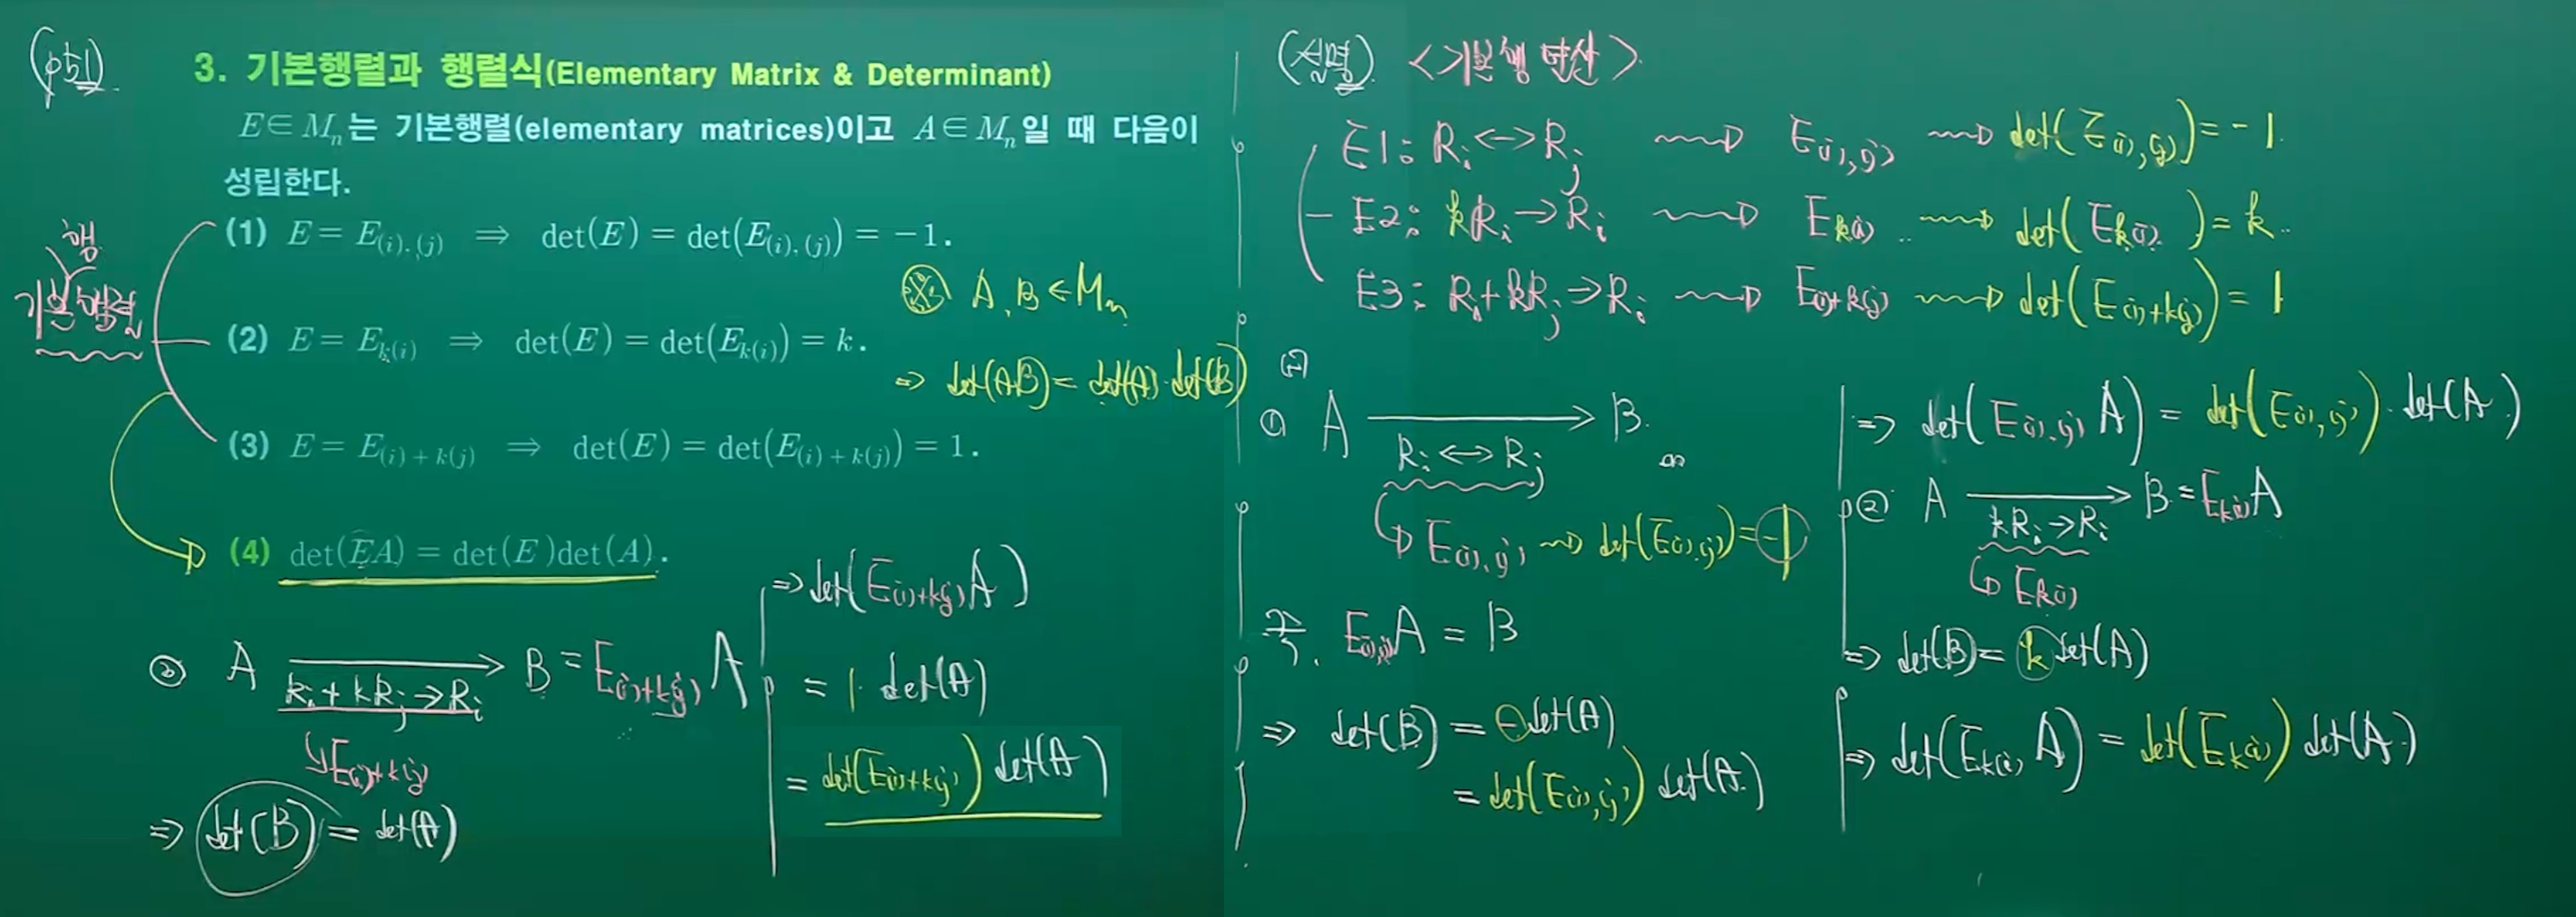 (p51)
3. 기본행렬과 행렬식(Elementary Matrix & Determinant)
E∈Mₙ는 기본행렬(elementary matrices)이고 A∈Mₙ일 때 다음이
성립한다.
행
기본행렬
(1) E = E₍ᵢ₎,₍ⱼ₎ ⇒ det(E) = det(E₍ᵢ₎,₍ⱼ₎) = −1.
(2) E = Eₖ₍ᵢ₎ ⇒ det(E) = det(Eₖ₍ᵢ₎) = k.
※ A, B ∈ Mₙ
⇒ det(AB) = det(A)·det(B)
(3) E = E₍ᵢ₎₊ₖ₍ⱼ₎ ⇒ det(E) = det(E₍ᵢ₎₊ₖ₍ⱼ₎) = 1.
(4) det(EA) = det(E)det(A).
③ A → B = E₍ᵢ₎₊ₖ₍ⱼ₎ A
Rᵢ + kRⱼ → Rᵢ
↳ E₍ᵢ₎₊ₖ₍ⱼ₎
⇒ det(B) = det(A)
⇒ det(E₍ᵢ₎₊ₖ₍ⱼ₎ A)
= 1·det(A)
= det(E₍ᵢ₎₊ₖ₍ⱼ₎) det(A)
(설명) <기본행 연산>
E1: Rᵢ ↔ Rⱼ ⇝ E₍ᵢ₎,₍ⱼ₎ ⇝ det(E₍ᵢ₎,₍ⱼ₎) = −1.
E2: kRᵢ → Rᵢ ⇝ Eₖ₍ᵢ₎ ⇝ det(Eₖ₍ᵢ₎) = k.
E3: Rᵢ + kRⱼ → Rᵢ ⇝ E₍ᵢ₎₊ₖ₍ⱼ₎ ⇝ det(E₍ᵢ₎₊ₖ₍ⱼ₎) = 1
① A → B.
Rᵢ ↔ Rⱼ
↳ E₍ᵢ₎,₍ⱼ₎ ⇝ det(E₍ᵢ₎,₍ⱼ₎) = −1
즉, E₍ᵢ₎,₍ⱼ₎A = B
⇒ det(B) = −det(A)
= det(E₍ᵢ₎,₍ⱼ₎) det(A).
⇒ det(E₍ᵢ₎,₍ⱼ₎ A) = det(E₍ᵢ₎,₍ⱼ₎)·det(A)
② A → B = Eₖ₍ᵢ₎A
kRᵢ → Rᵢ
↳ Eₖ₍ᵢ₎
⇒ det(B) = k det(A)
⇒ det(Eₖ₍ᵢ₎ A) = det(Eₖ₍ᵢ₎) det(A)